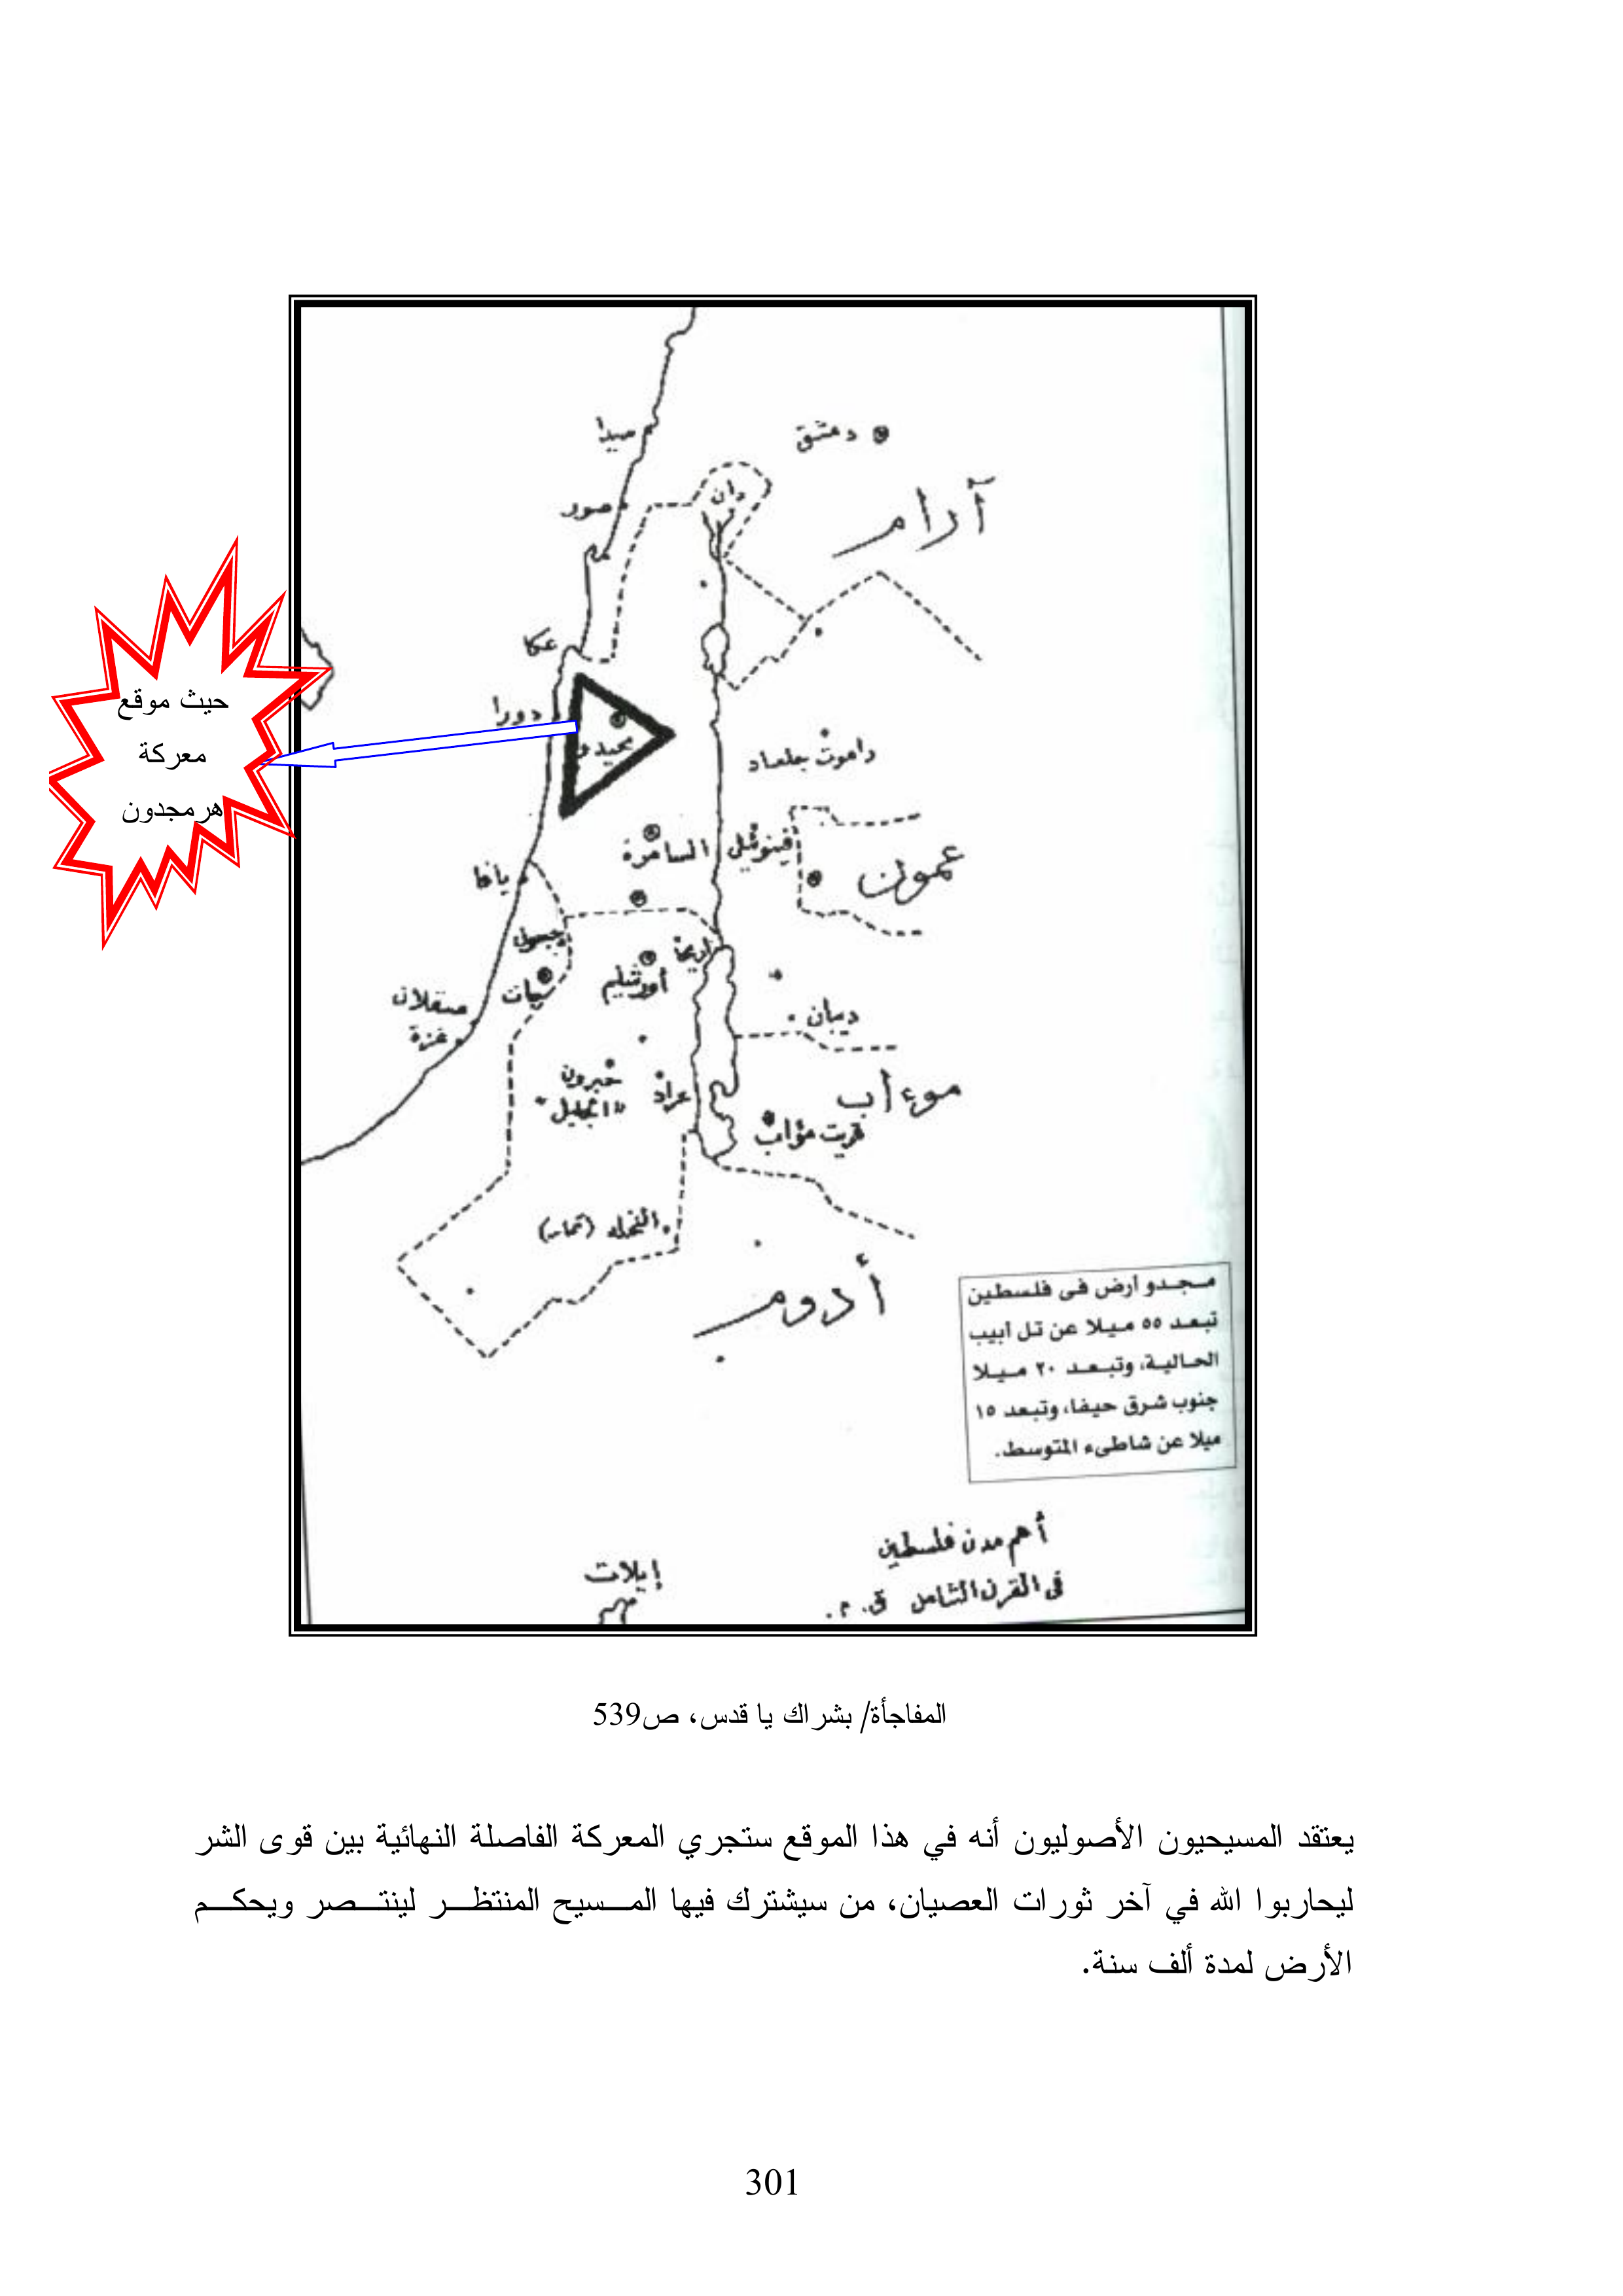 صيدا
دمشق
دان
صور
آرام
عكا
حيث موقع
معركة
هرمجدون
دورا
مجيدو
راموت جلعاد
فينوئيل
السامرة
عمون
يافا
أريحا
أورشليم
عسقلان
غزة
ديبان
حبرون
"الخليل"
عراد
موءاب
قريت مؤاب
أدوم
مـجـدو أرض فى فلسطين
تبعـد ٥٥ ميـلا عن تـل أبيب
الحـاليـة، وتبـعـد ٢٠ ميـلا
جنوب شرق حيفا، وتبعد ١٥
ميلا عن شاطىء المتوسط.
أهم مدن فلسطين
فى القرن الثامن ق. م.
إيلات
المفاجأة/ بشراك يا قدس، ص539
يعتقد المسيحيون الأصوليون أنه في هذا الموقع ستجري المعركة الفاصلة النهائية بين قوى الشر
ليحاربوا الله في آخر ثورات العصيان، من سيشترك فيها المـــسيح المنتظـــر لينتـــصر ويحكـــم
الأرض لمدة ألف سنة.
301